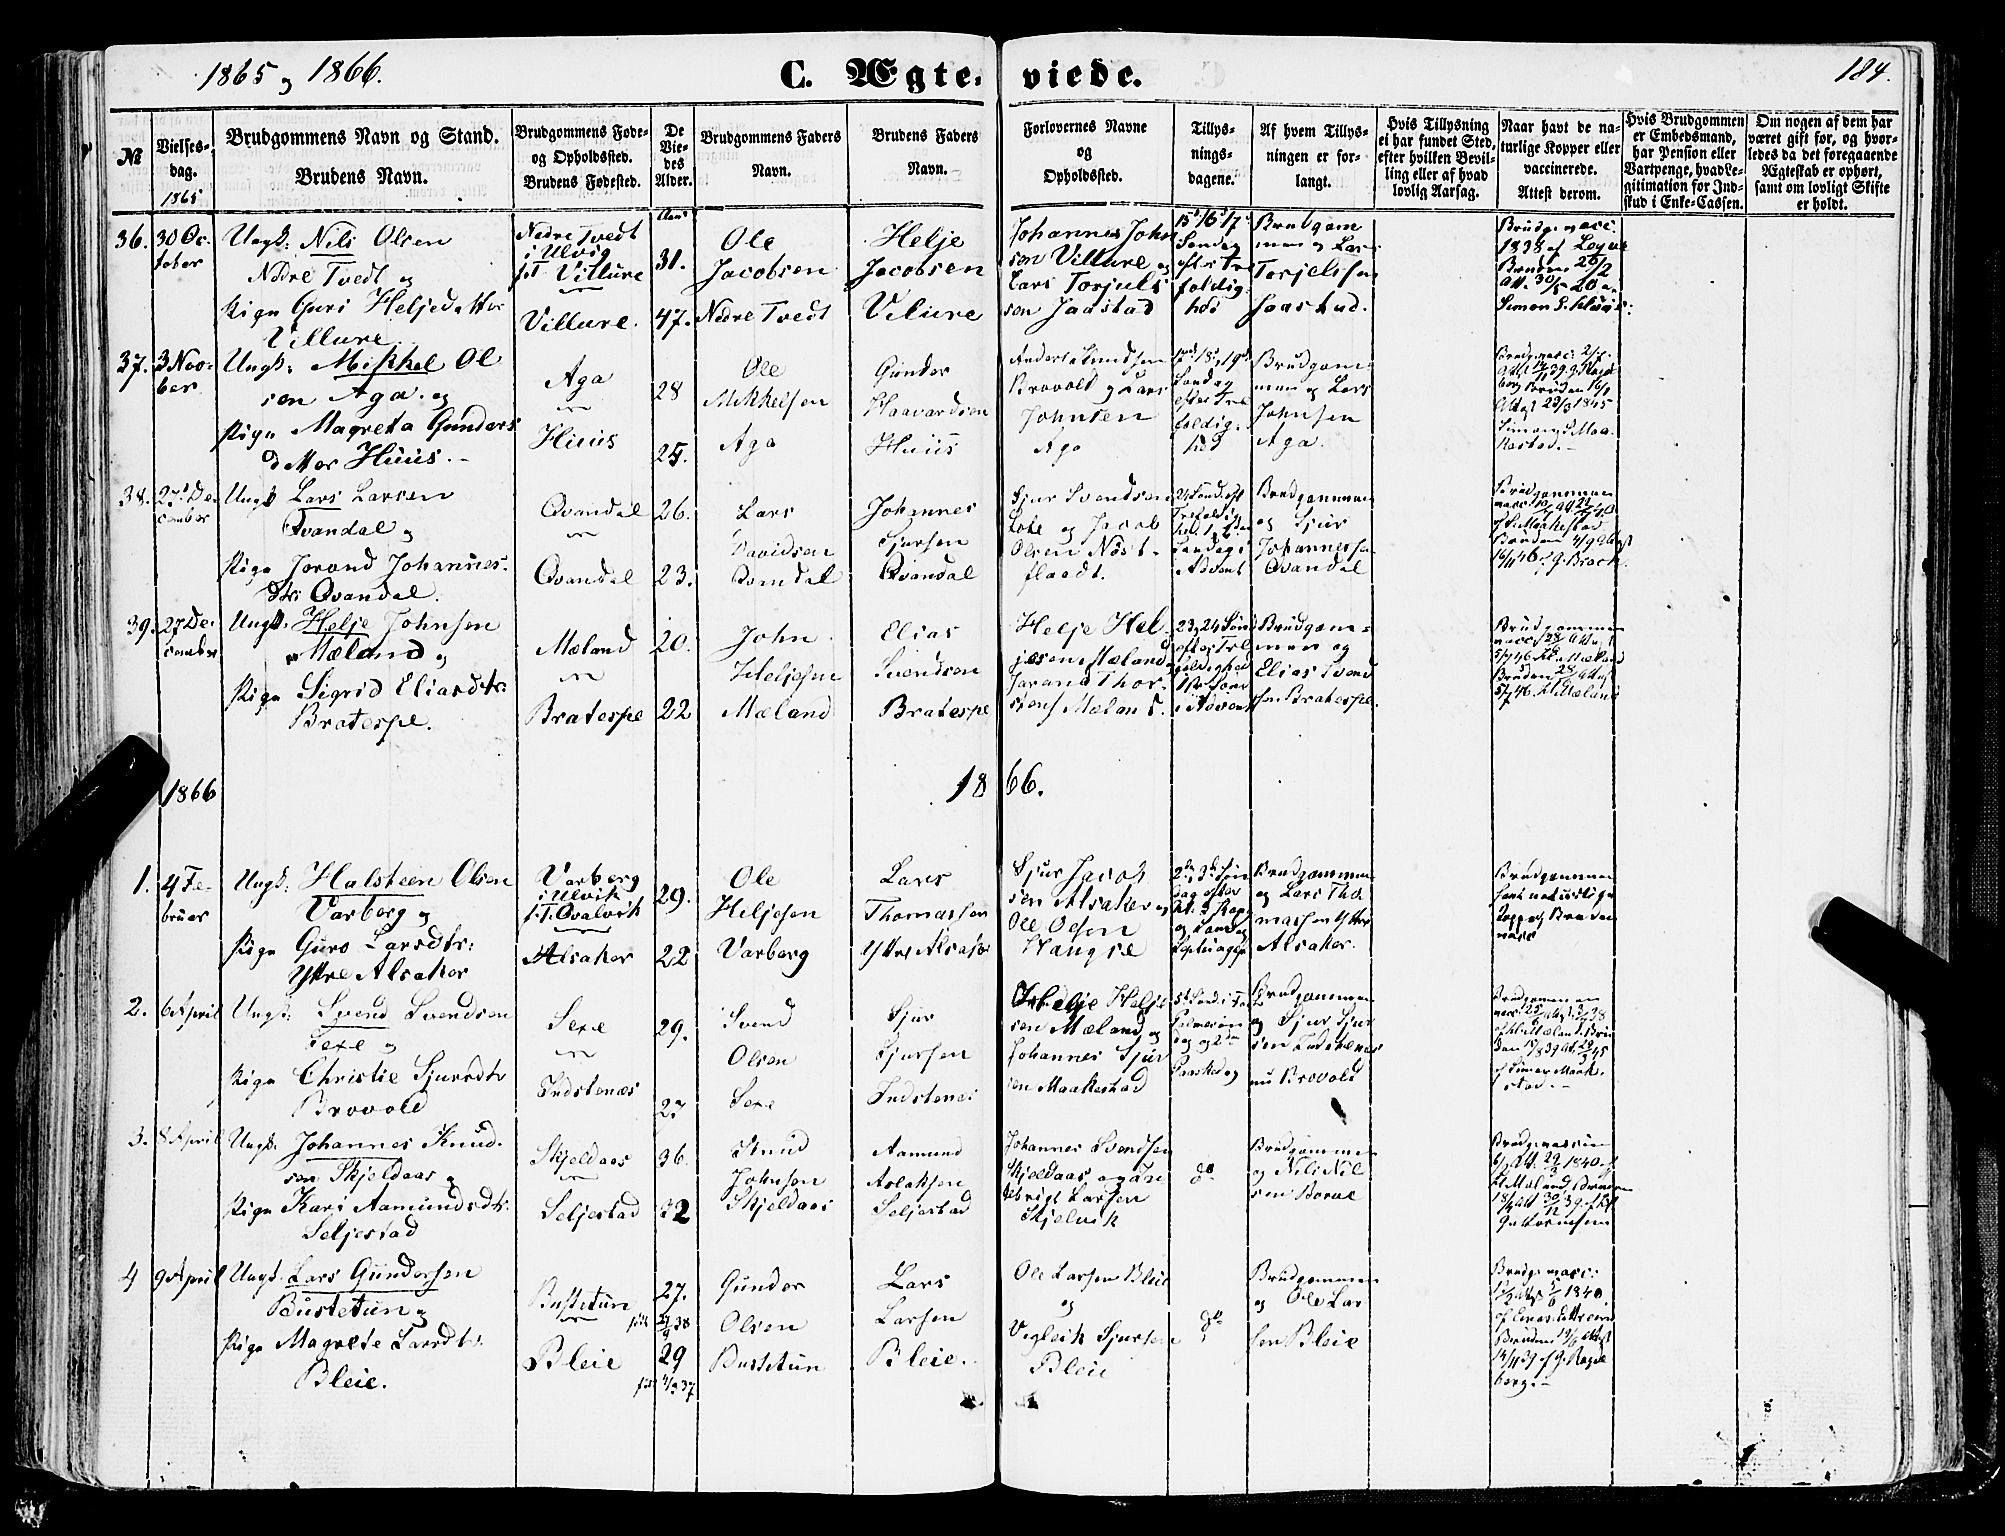 1865 og 1866.
C. Ægteviede.
184.
№
Vielsesdag.
1865
Brudgommens Navn og Stand.
Brudens Navn.
Brudgommens Føde-
og Opholdssted.
Brudens Fødested.
De
Vie-
des
Alder.
Brudgommens Faders
Navn.
Brudens Faders
Navn.
Forlovernes Navne
og
Opholdssted.
Tillys-
nings-
dagene.
Af hvem Tillys-
ningen er for-
langt.
Hvis Tillysning
ei har fundet Sted,
efter hvilken Bevil-
ling eller af hvad
lovlig Aarsag.
Naar havt de na-
turlige Kopper eller
vaccinerede.
Attest derom.
Hvis Brudgommen
er Embedsmand,
har Pension eller
Vartpenge, hvad Le-
gitimation for Ind-
skud i Enke-Cassen.
Om nogen af dem har
været gift før, og hvor-
ledes da det foregaaende
Ægteskab er ophørt,
samt om lovligt Skifte
er holdt.
36.
30 Oc-
tober
Ungk: Nils Olsen
Nedre Tvedt og
Pige Guri Heljedatter
Villure.
Nedre Tvedt
i Ulvig
Villure
Villure.
31.
47.
Ole
Jacobsen
Nedre Tvedt
Helje
Jacobsen
Vilure
Johannes John
sen Villure og
Lars Torjuls
sen Jaastad
15, 16, 17
Søndag
efter Tre
foldig-
hed
Brudgom
men og Lars
Torjelssen
Jaastad.
Brudg: vacc.
1838 af
Bruden 26/2
Simon
37.
3 Novbr
ber
Ungk: Mikkel Ol
sen Aga. og
Pige Magreta Gunders
datter Huus.
Aga
Huus
28
25.
Ole
Mikkelsen
Aga
Gunder
Haavardsen
Huus
Anders Knudsen
Brovold og Lars
Johnsen
Aga
17, 18, 19
Søndag
efter Tre
foldig-
hed
Brudgom-
men og Lars
Johnsen
Aga.
Brudg. vacc:
Bruden
1845
Simon S. Maa-
kestad.
38.
27 De-
cember
Ungk Lars Larsen
Qvandal og
Pige Jorand Johannes-
dtr: Qvandal.
Qvandal
Qvandal
26.
23.
Lars
Davidsen
Qvandal
Johannes
Sjursen
Qvandal
Sjur Svendsen
Lote og Jacob
Olsen Nöst-
flaadt.
Advent
Brudgommen
og Sjur
Johannessen
Qvandal
Brudgommen
Maakestad
Bruden
39.
27 De-
cember
Ungk: Helje Johnsen
Mæland og
Pige Sigrid Eliasdtr:
Bratespe.
Mæland
Bratespe
20.
22
John
Heljesen
Mæland
Elias
Svendsen
Bratespe
Helje Hel
jesen Mæland
Jorand Thor-
Mæland.
23, 24 Sønd
efter Tre
foldighed
1ste Sønd
i Advent
Brudgom-
men og
Elias Svend
sen Bratespe.
Brudgommen
Mæland
Bruden
Mæland
1866
1866.
1.
4 Fe-
bruar
Ungk: Halsteen Olsen
Varberg og
Pige Guro Larsdtr:
Ytre Alsaker
Varberg
i Ulvik
Qvalvik
Alsaker
29.
22
Ole
Heljesen
Varberg
Lars
Thomassen
Ytre Alsaker
Sjur Jacob
sen Alsaker og
Ole Olsen
Haugse
2den, 3die Søn
dag efter
Brudgommen
og Lars Tho
massen Ytre
Alsaker.
Brudgommen
havt naturlige
Kopper Bruden
vacc
2.
6 April
Ungk: Svend Svendsen
Sexe og
Pige Christie Sjursdtr
Brovold
Sexe
Indstenæs
29.
27
Svend
Olsen
Sexe
Sjur
Sjursen
Indstenes
Helje Helje
sen Mæland og
Johannes Sjur
sen Maakestad
Palmesøn
dag og 2den
Paaskedag
Brudgommen
og Sjur Sjur
sen Indstenes
nu Brovold
Brudgommen
vacc.
3.
8 April
Ungk: Johannes Knud-
sen Skjeldaas og
Pige Kari Aamundsdtr:
Seljestad
Skjeldaas
Seljestad
36.
32
Knud
Johnsen
Skjeldaas
Aamund
Aslaksen
Seljestad
Johannes Svendsen
Skjeldaas og
Larsen
Skjelvik
do
Brudgommen
og Nils Nil
sen Borve
Brudg. vaccin
1840
Mæland Bruden
Guttormsen
4
9 April
Ungk. Lars Gundersen
Bustetun og
Pige Magrete Larsdtr:
Bleie.
Bustetun
Bleie
27.
29
Gunder
Olsen
Bustetun
Lars
Larsen
Bleie.
Ole Larsen Bleie
og
Vigleik Sjursen
Bleie
do
Brudgommen
og Ole Lar
sen Bleie
Brudg: vacc:
1840
Bruden
berg.